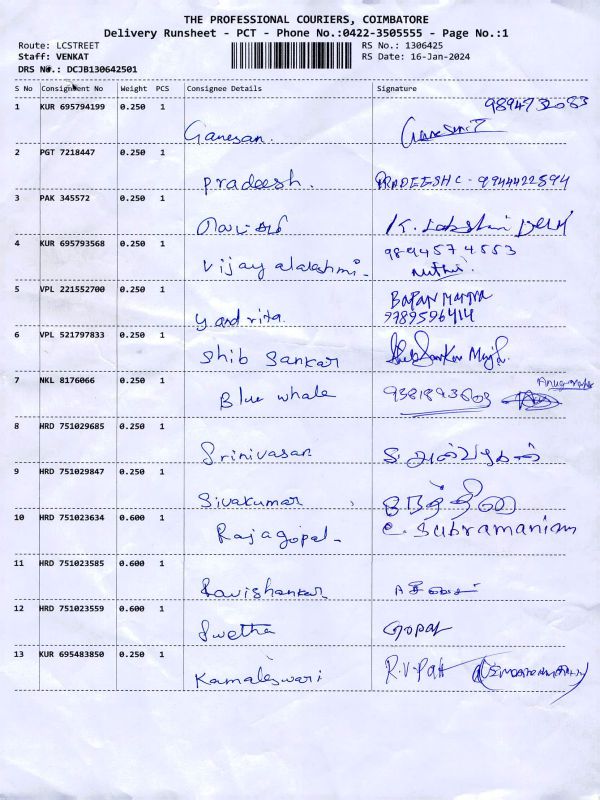 THE PROFESSIONAL COURIERS, COIMBATORE
Delivery Runsheet - PCT - Phone No.:0422-3505555 - Page No.:1
Route: LCSTREET
RS No.: 1306425
Staff: VENKAT
RS Date: 16-Jan-2024
DRS No.: DCJB130642501
S No Consignment No Weight PCS Consignee Details Signature
1 KUR 695794199 0.250 1
Ganesan.
9894732083
2 PGT 7218447 0.250 1
Pradeesh.
PRADEESH C - 9944422594
3 PAK 345572 0.250 1
K. Lakshmi Devi
4 KUR 695793568 0.250 1
Vijayalakshmi-
9894574553
Muthu.
5 VPL 221552700 0.250 1
Y and rita
9789596414
6 VPL 521797833 0.250 1
Shib Sankar
7 NKL 8176066 0.250 1
Blue whale
9381893603
8 HRD 751029685 0.250 1
Srinivasan
9 HRD 751029847 0.250 1
Sivakumar
10 HRD 751023634 0.600 1
Rajagopal-
C. Subramaniam
11 HRD 751023585 0.600 1
Ravishankar
12 HRD 751023559 0.600 1
Swetha
Gopal
13 KUR 695483850 0.250 1
Kamaleswari